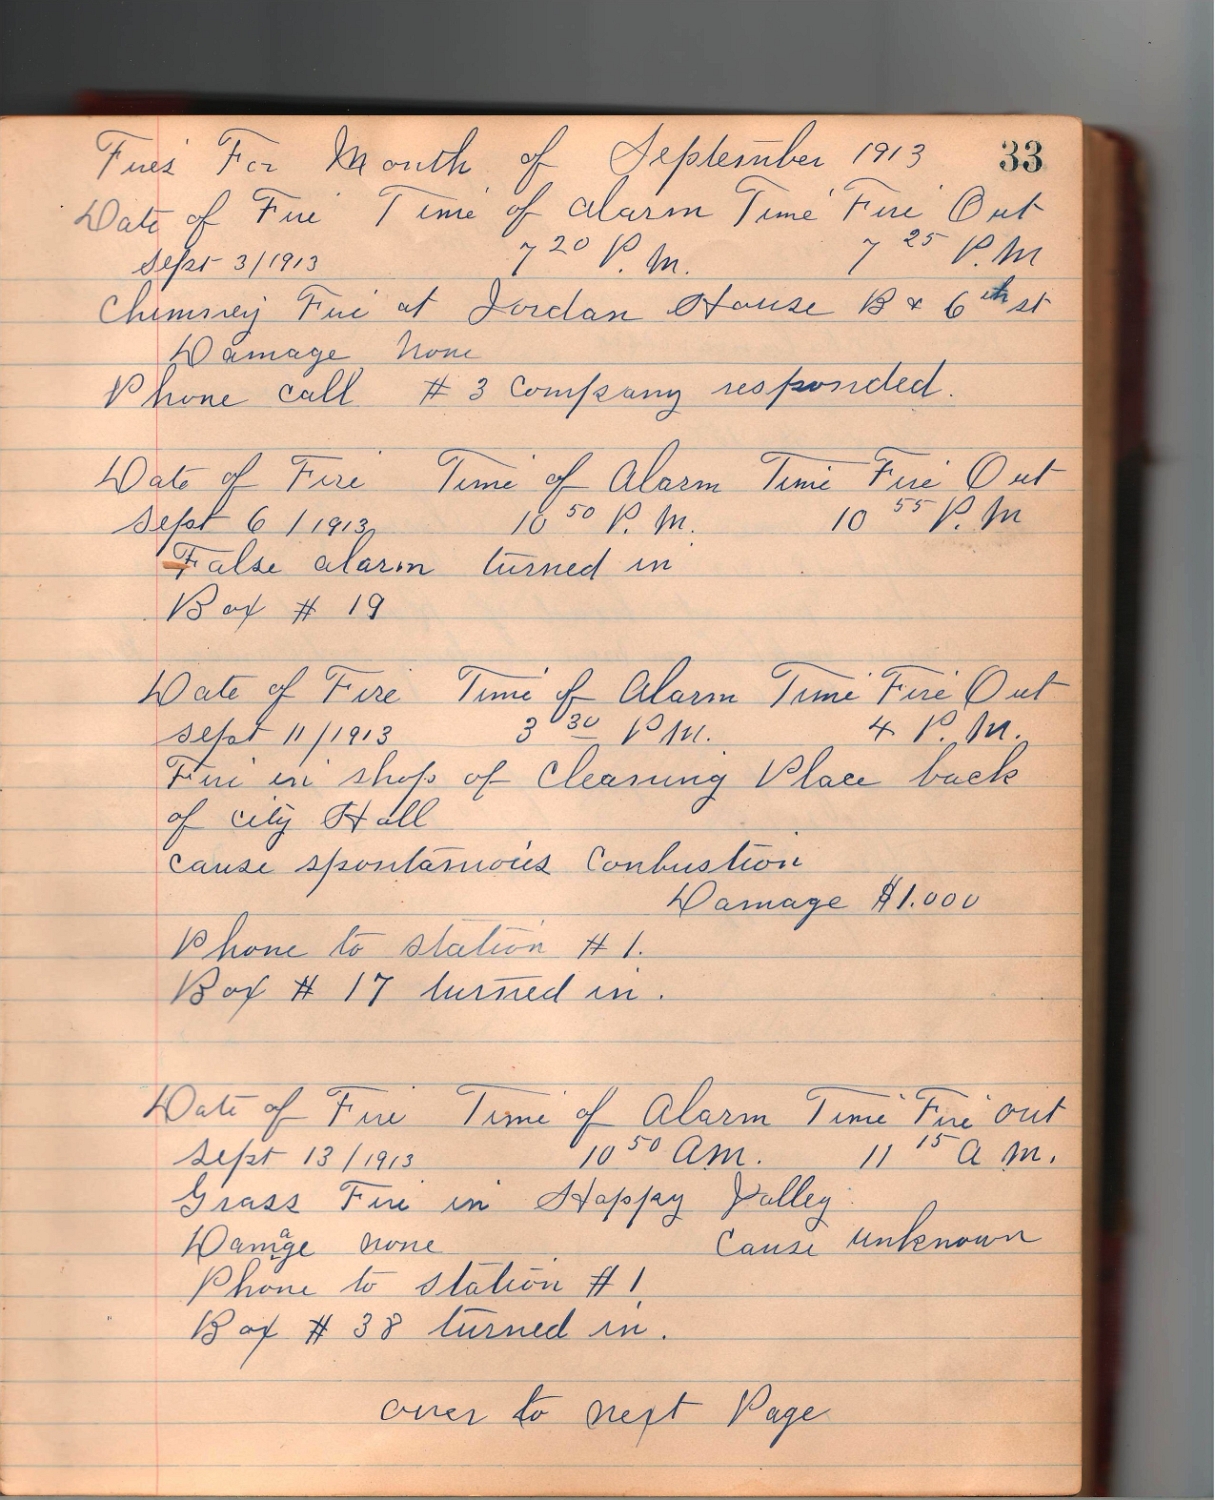 Fires For Month of September 1913 33
Date of Fire Time of Alarm Time Fire Out
Sept 3/1913 7 20 P.M. 7 25 P.M
Chimney Fire at Jordan House B & 6th st
Damage None
Phone call # 3 Company responded.
Date of Fire Time of Alarm Time Fire Out
Sept 6/1913 10 50 P.M. 10 55 P.M
False alarm turned in
Box # 19
Date of Fire Time of Alarm Time Fire Out
Sept 11/1913 3 30 PM. 4 P.M.
Fire in shop of Cleaning Place back
of city Hall
cause spontanious Conbustion
Damage $1.000
Phone to station # 1.
Box # 17 turned in.
Date of Fire Time of Alarm Time Fire out
Sept 13/1913 10 50 AM. 11 15 A M.
Grass Fire in Happy Valley
Damage none Cause unknown
Phone to station # 1
Box # 38 turned in.
over to next Page